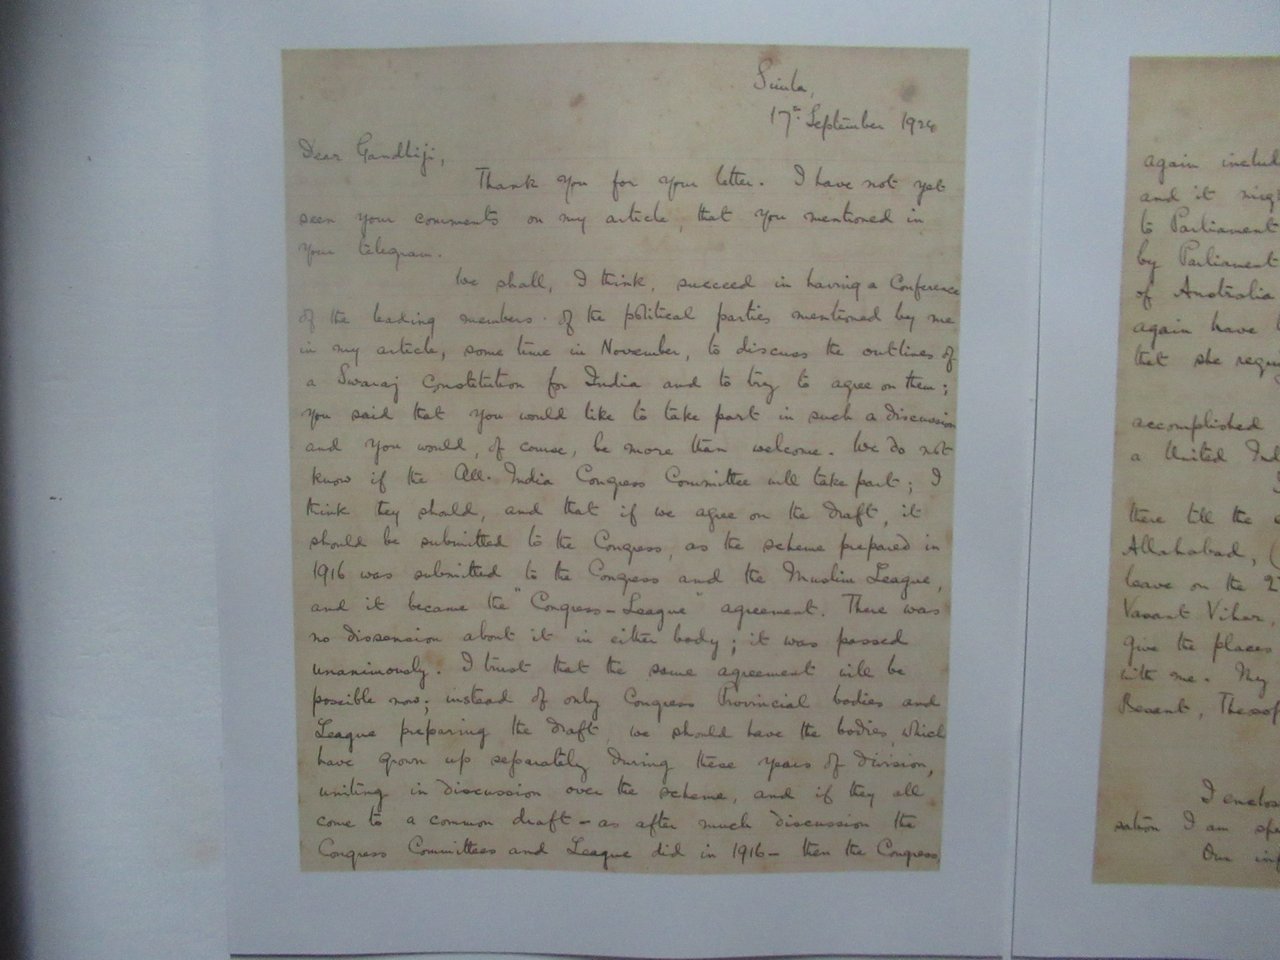 Simla,
17th September 1924
Dear Gandhiji,
Thank you for your letter. I have not yet
seen your comments on my article, that you mentioned in
your telegram.
We shall, I think, succeed in having a Conference
of the leading members of the political parties mentioned by me
in my article, some time in November, to discuss the outlines of
a Swaraj Constitution for India and to try to agree on them;
you said that you would like to take part in such a discussion
and you would, of course, be more than welcome. We do not
know if the All-India Congress Committee will take part; I
think they should, and that if we agree on the draft, it
should be submitted to the Congress, as the scheme prepared in
1916 was submitted to the Congress and the Muslim League,
and it became the "Congress-League" agreement. There was
no dissension about it in either body; it was passed
unanimously. I trust that the same agreement will be
possible now; instead of only Congress Provincial bodies and
League preparing the draft, we should have the bodies, which
have grown up separately during these years of division,
uniting in discussion over the scheme, and if they all
come to a common draft - as after much discussion the
Congress Committees and League did in 1916 - then the Congress
again includ
and it
to Parliament
by Parliament
of Australia
again have
that she
accomplished
a United Ind
there till the
Allahabad,
leave on the 2
Vasant Vihar,
give the places
with me. My
Besant, Theosof
I enclos
sation I am
Our inf